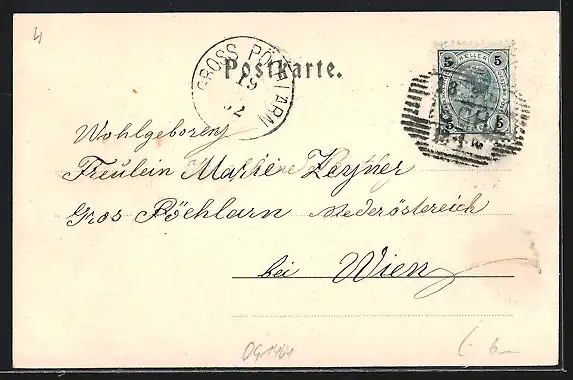 4
GROSS PÖCHLARN
19
02
Postkarte.
5 HELLER 5
5 5
18
Wohlgeboren
Freulein Marie Zeyner
Gros Pöchlarn Niederöstereich
bei Wien
6–